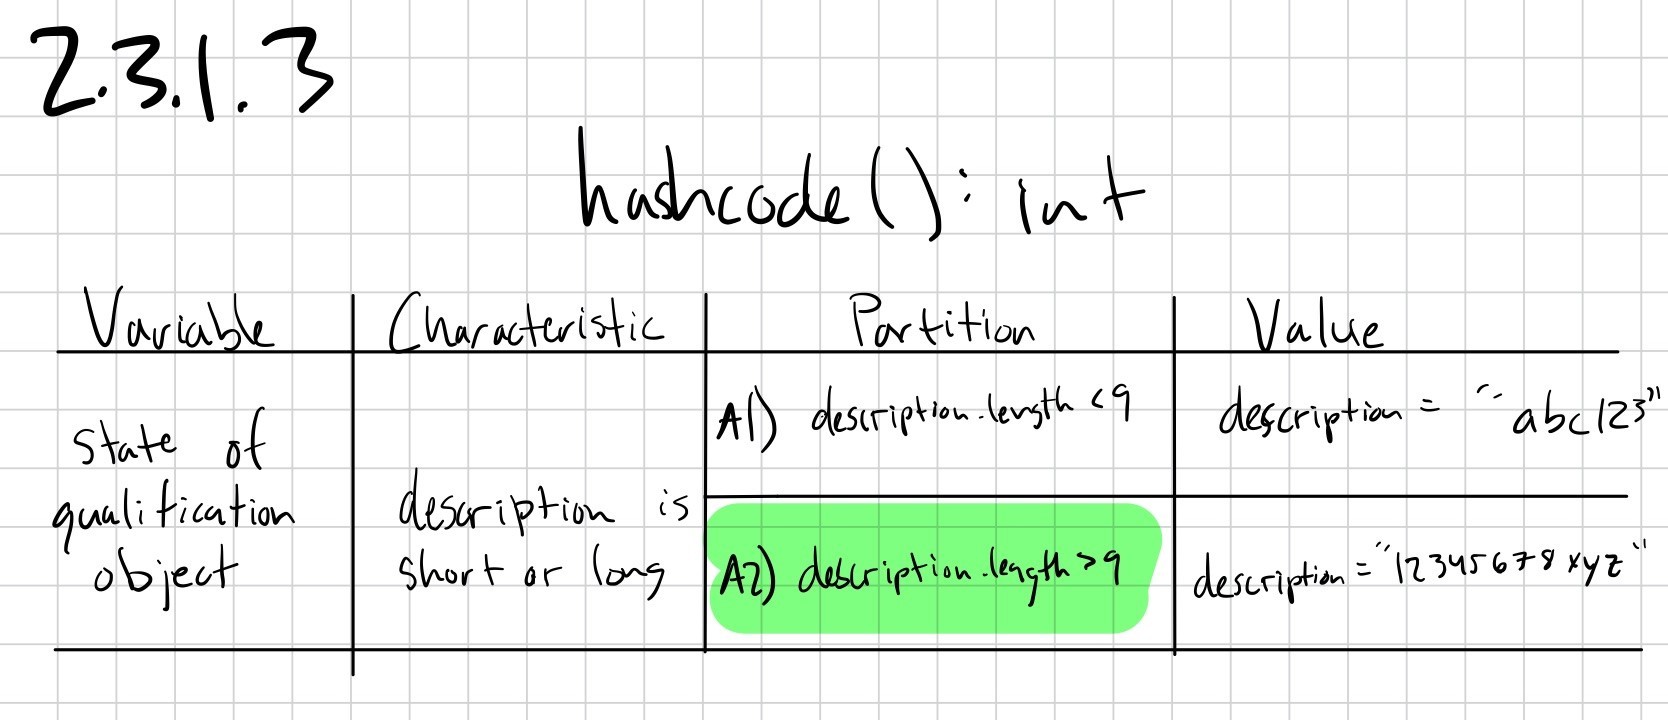 2.3.1.3
hashcode(): int
Variable
Characteristic
Partition
Value
state of
qualification
object
description is
short or long
A1) description.length < 9
description = "abc123"
A2) description.length > 9
description = "12345678xyz"